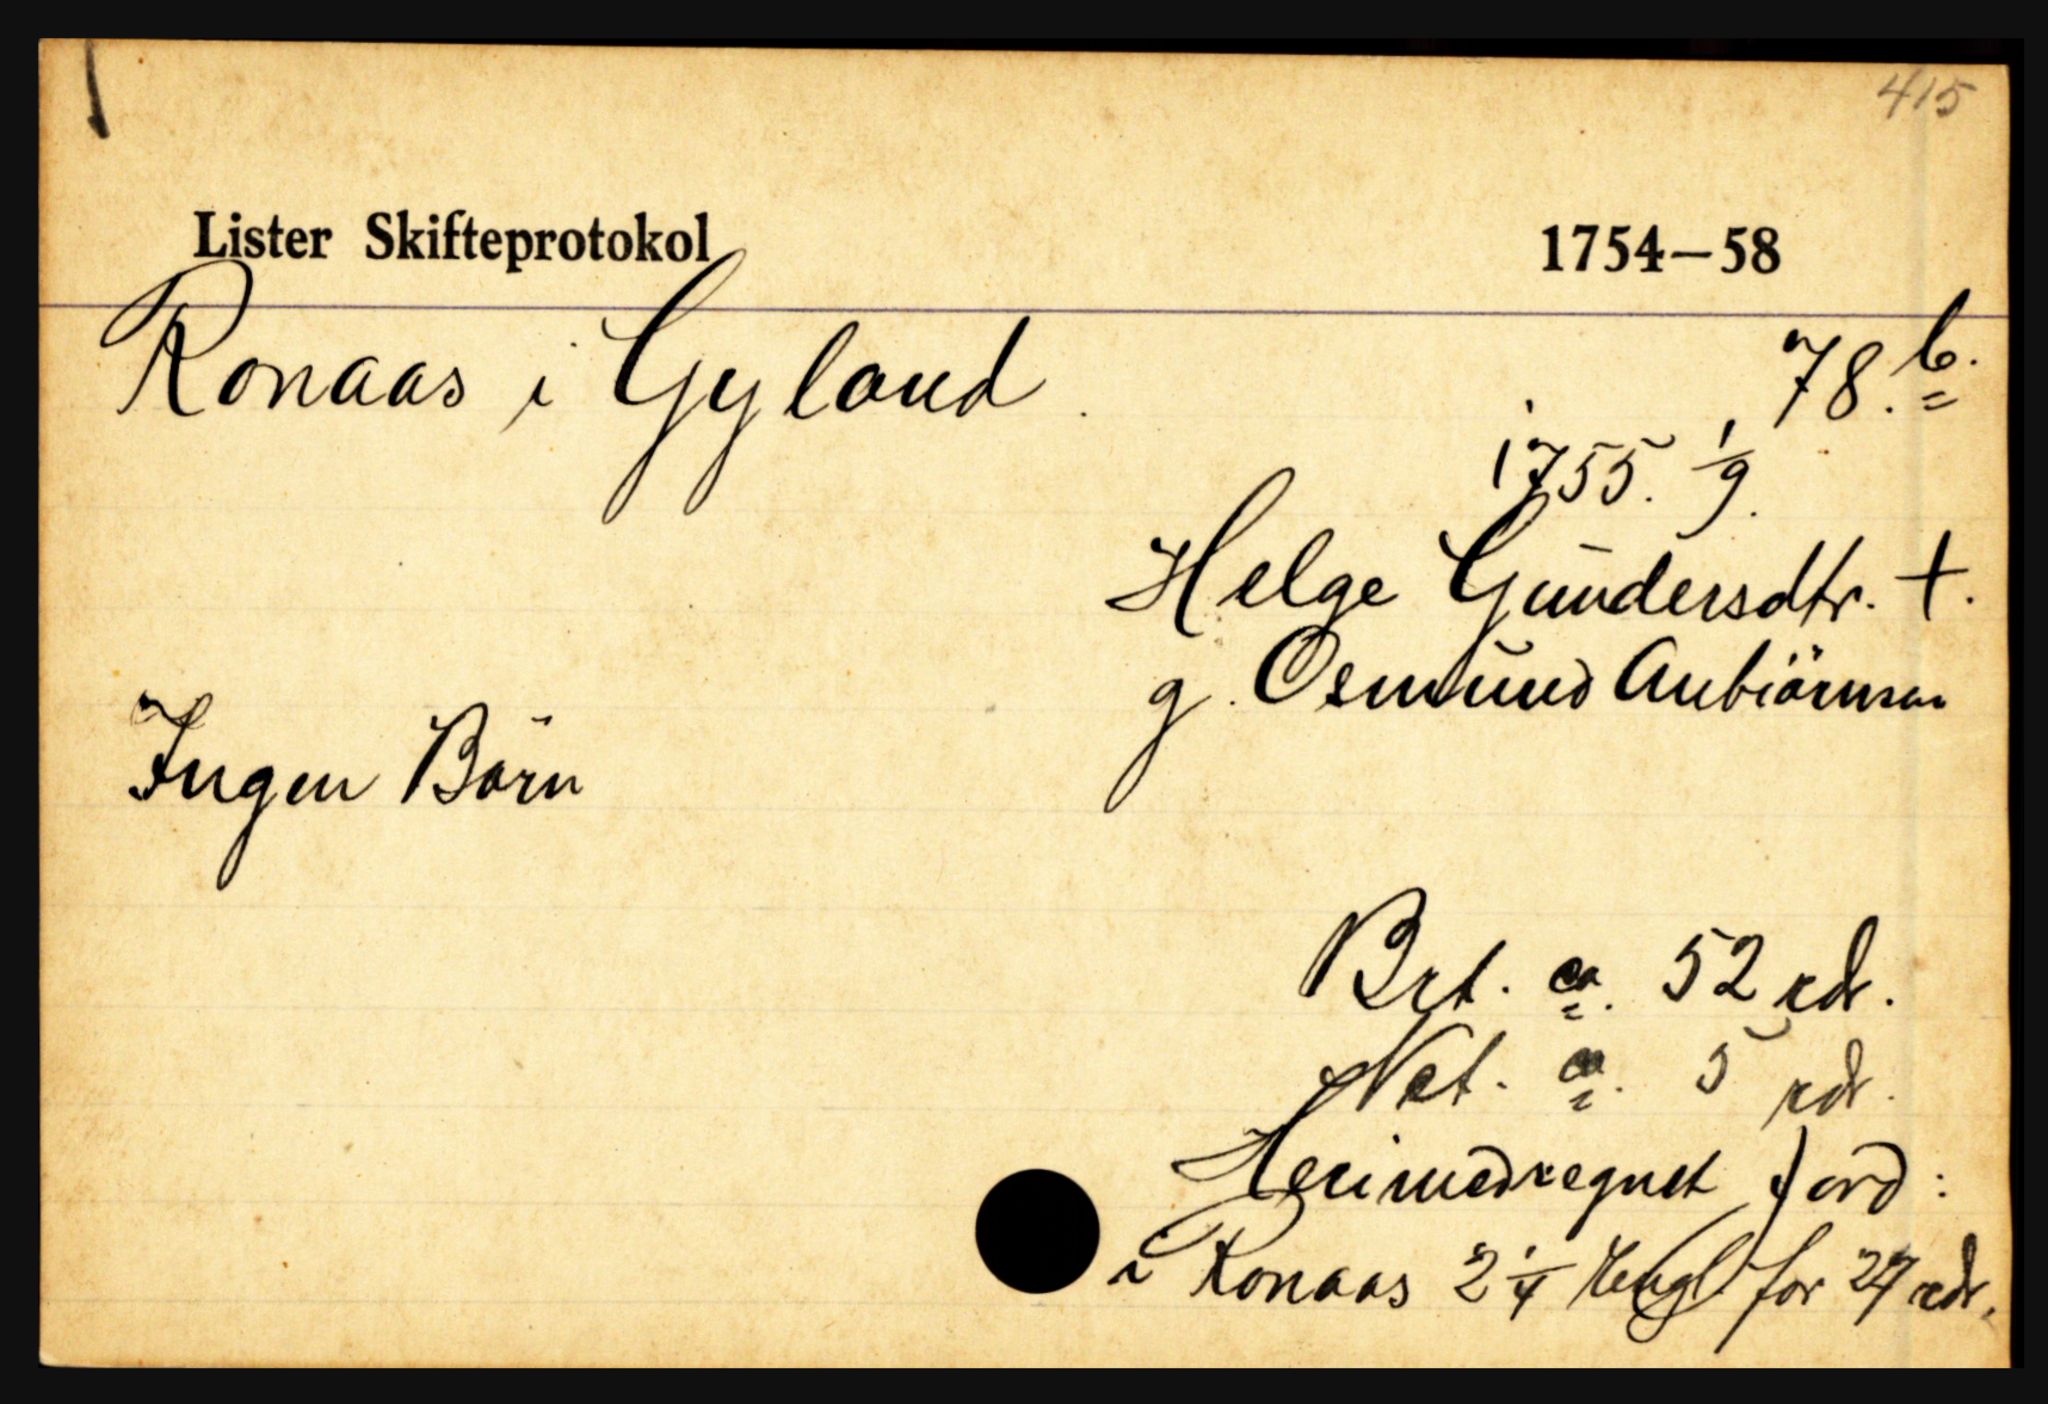 415
Lister Skifteprotokol 1754—58
Ronaas i Gyland. 78.b.
1755. 1/9.
Helge Gundersdtr. +.
g. Osmund Anbiörnsen
Ingen Börn
Brt. ca. 52 rdr.
Net. ca. 5 rdr.
Herimedregnet jord:
i Ronaas 2 1/4 Engl. for 27 rdr.